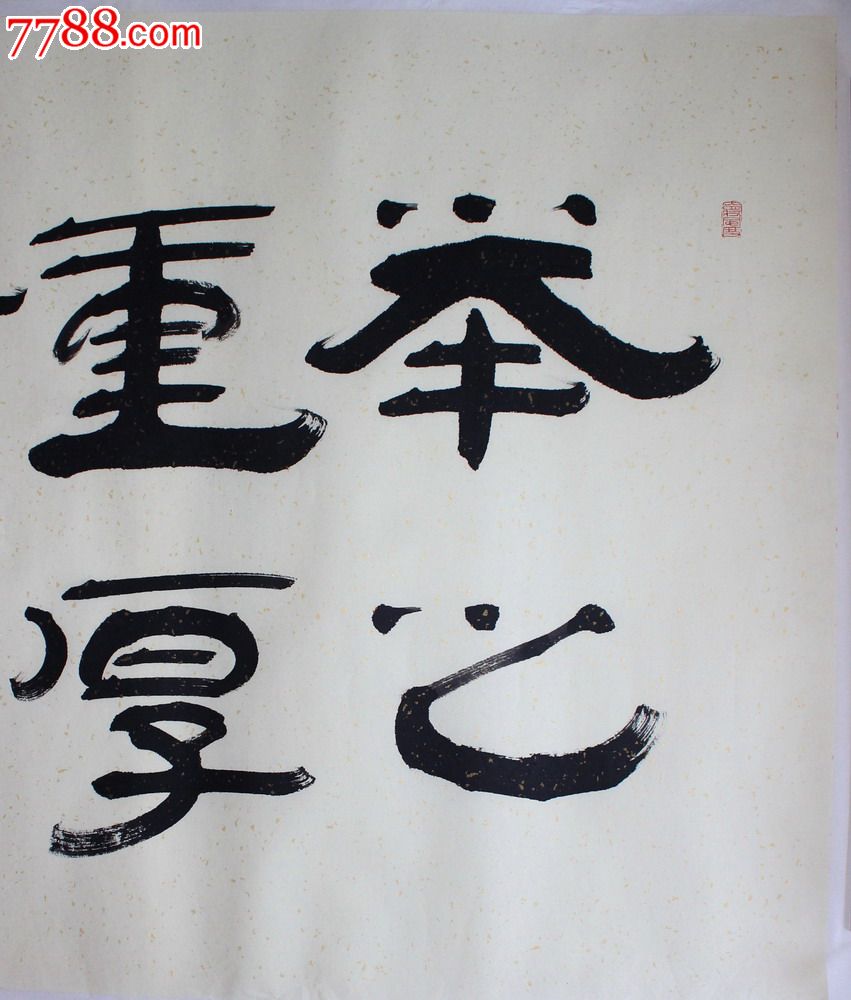 7788.com
举止
重厚